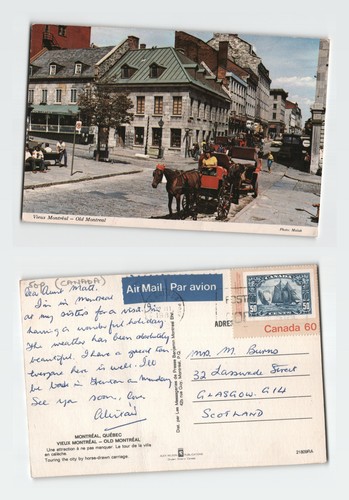 Vieux Montréal – Old Montreal
Photo: Malak
50¢ (CANADA)
Air Mail Par avion
Dear Aunt Matt.
I'm in Montreal
at my sisters for a visit. I'm
having a wonderful holiday
The weather has been absolutely
beautiful. I have a great tan
everyone here is well. I'll
be back in on Monday
See you soon, love
Alistair
CANADA
POSTA
Canada 60
ADRES
MR. M. Burns
32 Street
GLASGOW. G14
SCOTLAND
MONTRÉAL, QUÉBEC
VIEUX MONTRÉAL – OLD MONTRÉAL
Une attraction à ne pas manquer: Le tour de la ville
en calèche.
Touring the city by horse-drawn carriage.